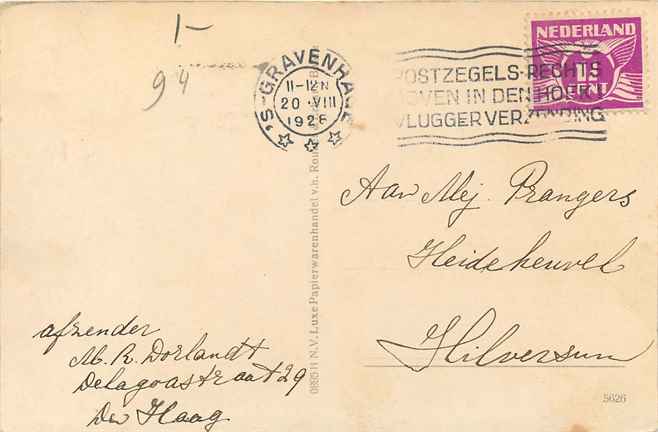 1-
94
'S-GRAVENHAGE
11-12N
20 VIII
1926
POSTZEGELS-RECHTS
BOVEN IN DEN HOEK
VLUGGER VERZENDING
NEDERLAND
CENT
Aan Mej. Prangers
Heideheuvel
Hilversum
afzender
M. R. Dorlandt
Delagoastraat 29
Den Haag
N.V. Luxe Papierwarenhandel v.h.
5626